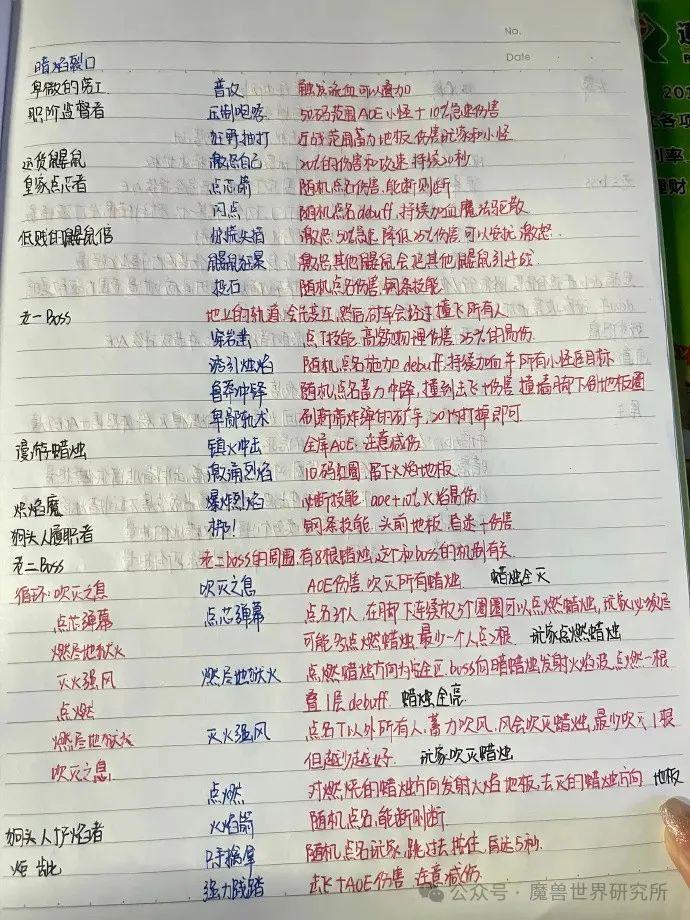 No.
Date
暗焰裂口
卑微的劳工 普攻 触发流血可以叠加
职阶监督者 压制咆哮 50码范围AOE小怪+10%急速伤害
狂野抽打 近战范围蓄力地板,伤害玩家和小怪
运货鼹鼠 激怒自己 20%的伤害和攻速,持续20秒
皇家点芯者 点芯箭 随机点名伤害,能断则断
闪点 随机点名debuff,持续加血魔法驱散
低贱的鼹鼠倌 惊慌失措 激怒50%急速,降低25%伤害,可以安抚激怒.
鼹鼠狂暴 激怒其他鼹鼠,会把其他鼹鼠引
投石 随机点名伤害,钢条技能
老一Boss 地上的轨道,会先变红,然后矿车会经过撞飞所有人
岩凿 点T技能,高额物理伤害,25%的易伤.
诱引烛焰 随机点名施加debuff,持续加血并所有小怪追目标
自莽冲锋 随机点名蓄力冲锋,撞到击飞+伤害,撞墙脚下创地板圈
卑鄙轨术 刷新带炸弹的矿车,20内打掉即可.
漫游蜡烛 镇火冲击 全屏AOE 注意减伤
激涌烈焰 10码红圈,留下火焰地板.
炽焰魔 爆炸烈焰 必断技能,aoe+10%火焰易伤.
狗头人履职者 梆! 钢条技能,头前地板,昏迷+伤害
老二Boss 老二boss的周围,有8根蜡烛,这个和boss的机制有关.
循环:吹灭之息 吹灭之息 AOE伤害 吹灭所有蜡烛 蜡烛全灭
点芯弹幕 点芯弹幕 点名3个人,在脚下连续放5个圈圈可以点燃蜡烛,玩家必须尽
燃尽地狱火 可能多点燃蜡烛,最少一个人点2根. 玩家点燃蜡烛
灭火强风 燃尽地狱火 点燃蜡烛方向为安全区.boss向暗蜡烛发射火焰波,点燃一根
点燃 叠1层debuff 蜡烛全亮.
燃尽地狱火 灭火强风 点名T以外所有人,蓄力吹风,风会吹灭蜡烛,最少吹灭1根
吹灭之息 但越少越好. 玩家吹灭蜡烛
点燃 对燃烧的蜡烛方向发射火焰地板,去灭的蜡烛方向 地板
狗头人抒焰者 火焰箭 随机点名,能断则断
炬龇 阴手擒拿 随机点名玩家,跳过去按住,昏迷5秒.
强力践踏 击飞+AOE伤害 注意减伤
公众号·魔兽世界研究所
201
各项
利率
理财